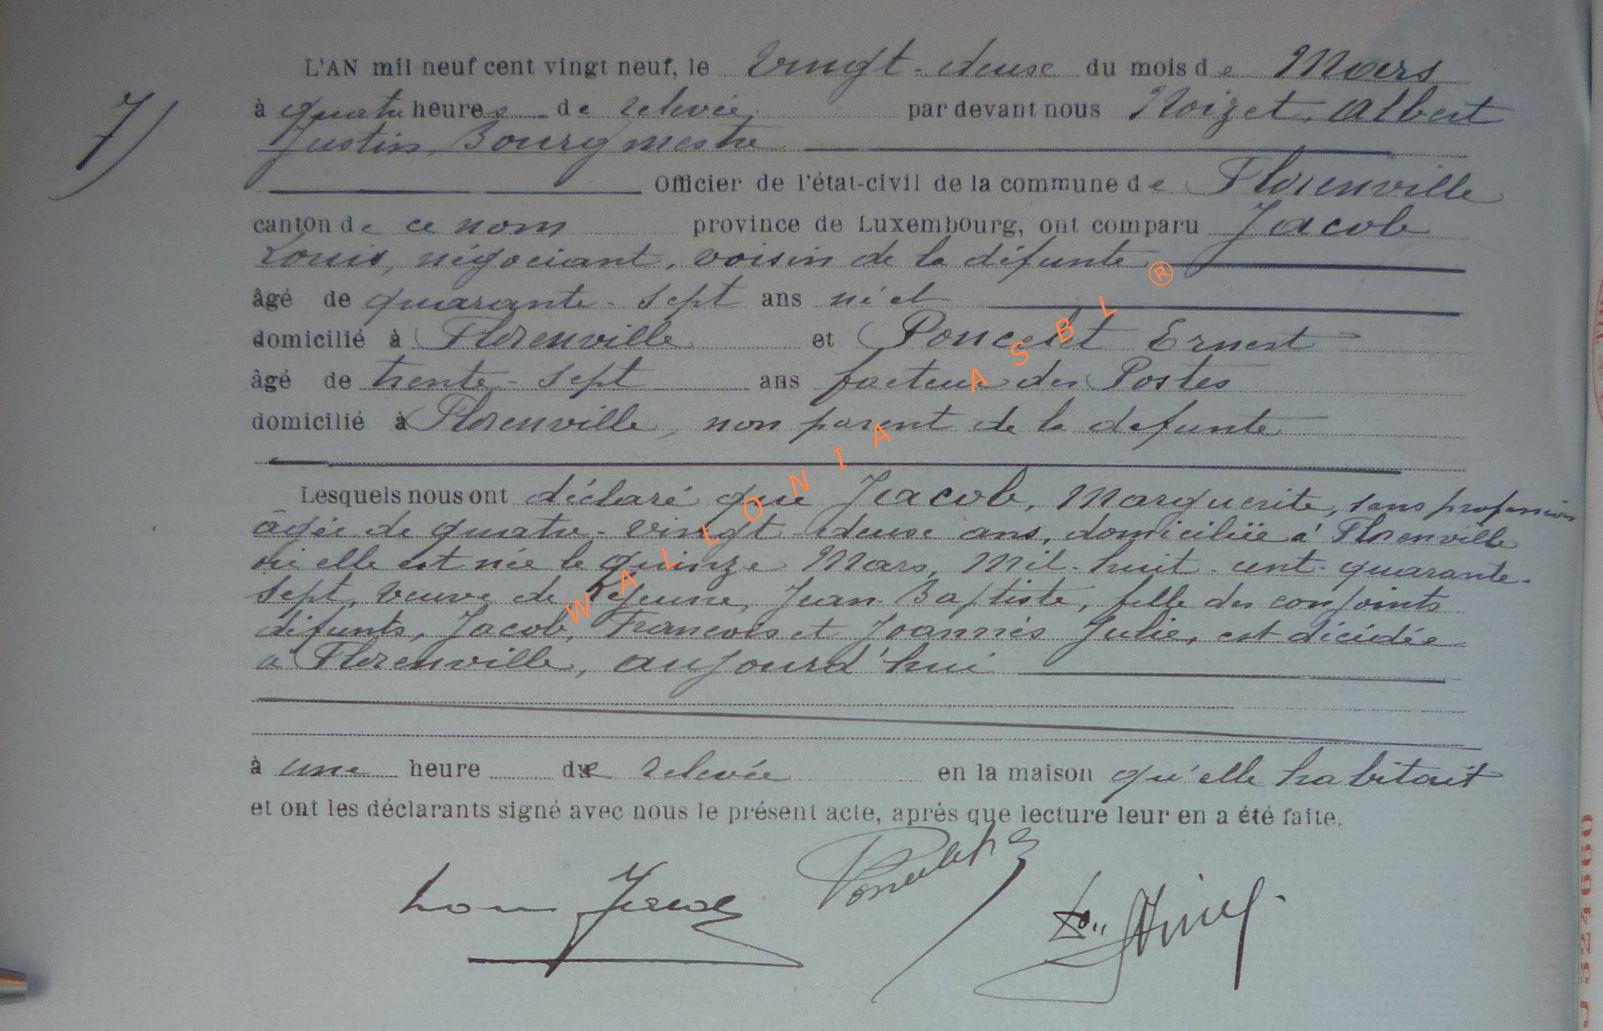 L'AN mil neuf cent vingt neuf, le vingt-deuse du mois de Mars
7)
à quatre heures de relevée par devant nous Noizet, Albert
Justin, Bourgmestre
Officier de l'état-civil de la commune de Florenville
canton de ce nom province de Luxembourg, ont comparu Jacob
Louis, négociant, voisin de la défunte
âgé de quarante-sept ans né et
domicilié à Florenville et Poncelet Ernest
âgé de trente-sept ans facteur des Postes
domicilié à Florenville, non parent de la defunte
Lesquels nous ont déclaré que Jacob, Marguerite, sans profession
âgée de quatre-vingt-deuse ans, domiciliée à Florenville
où elle est née le quinze Mars, Mil-huit-cent-quarante-
sept, veuve de Lejeune, Jean-Baptiste, fille des conjoints
défunts, Jacob, François et Joannès Julie, est décédée
à Florenville, aujourd'hui
à une heure de relevée en la maison qu'elle habitait
et ont les déclarants signé avec nous le présent acte, après que lecture leur en a été faite.
Louis Jacob Poncelet
WALLONIA ASBL ®